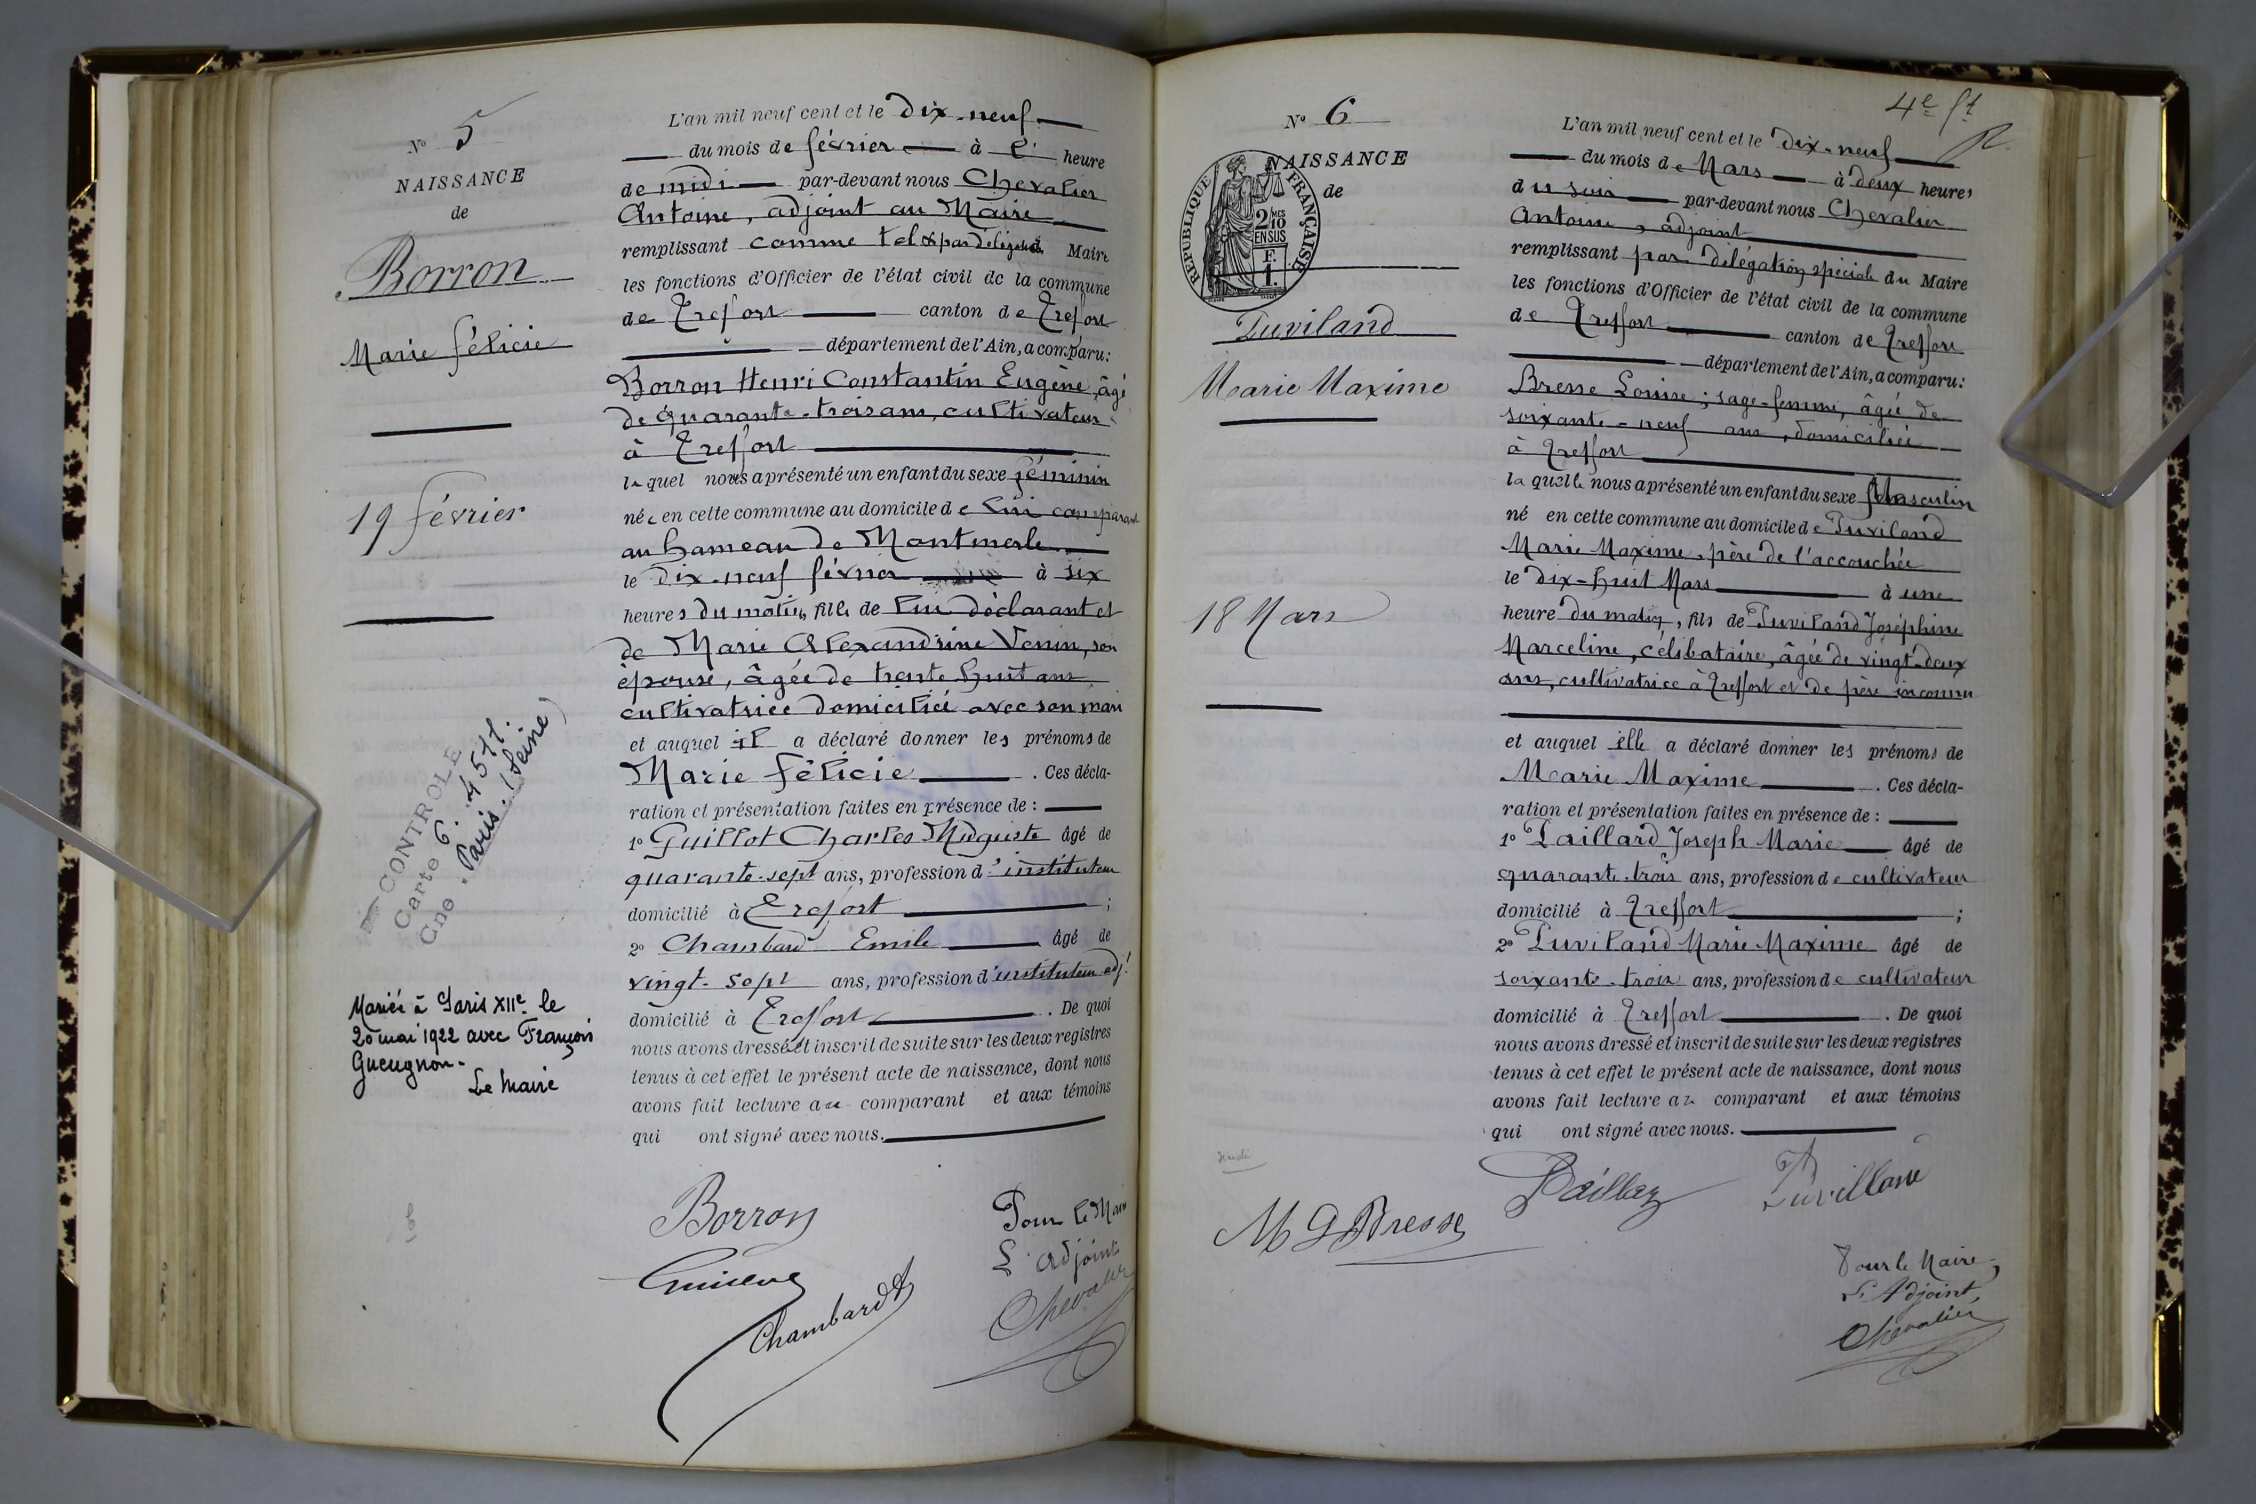 N° 5
NAISSANCE
de
Borron
Marie Félicie
19 février
CONTROLE
Carte 6.
Cne. Paris. (Seine)
Mariée à Paris XIIe le
20 mai 1922 avec François
Gueugnon.
Le Maire
L'an mil neuf cent et le dix-neuf
du mois de février à l' heure
de midi par-devant nous Chevalier
Antoine, adjoint au Maire
remplissant comme tel & par délégation du Maire
les fonctions d'Officier de l'état civil de la commune
de Treffort canton de Treffort
département de l'Ain, a comparu:
Borron Henri Constantin Eugène, âgé
de quarante-trois ans, cultivateur
à Treffort
lequel nous a présenté un enfant du sexe féminin
née en cette commune au domicile de lui comparant
au hameau de Montmerle
le dix-neuf février à six
heures du matin, fille de lui déclarant et
de Marie Alexandrine Venin, son
épouse, âgée de trente huit ans
cultivatrice domiciliée avec son mari
et auquel il a déclaré donner les prénoms de
Marie Félicie. Ces décla-
ration et présentation faites en présence de :
1° Guillot Charles Auguste âgé de
quarante-sept ans, profession d'instituteur
domicilié à Treffort ;
2° Chambard Emile âgé de
vingt-sept ans, profession d'instituteur adj.t
domicilié à Treffort. De quoi
nous avons dressé et inscrit de suite sur les deux registres
tenus à cet effet le présent acte de naissance, dont nous
avons fait lecture au comparant et aux témoins
qui ont signé avec nous.
Borron
Pour le Maire
L'adjoint
Chambard
Chevalier
4e ft
N° 6
NAISSANCE
de
RÉPUBLIQUE FRANÇAISE
2/10 MES
EN SUS
F.
1.
Puviland
Marie Maxime
18 Mars
L'an mil neuf cent et le dix-neuf
du mois de Mars à deux heures
du soir par-devant nous Chevalier
Antoine, adjoint
remplissant par délégation spéciale du Maire
les fonctions d'Officier de l'état civil de la commune
de Treffort canton de Treffort
département de l'Ain, a comparu:
Bresse Louise; sage-femme, âgée de
soixante-neuf ans, domiciliée
à Treffort
laquelle nous a présenté un enfant du sexe Masculin
né en cette commune au domicile de Puviland
Marie Maxime, père de l'accouchée
le dix-huit Mars à une
heure du matin, fils de Puviland Joséphine
Marceline, célibataire, âgée de vingt-deux
ans, cultivatrice à Treffort et de père inconnu
et auquel elle a déclaré donner les prénoms de
Marie Maxime. Ces décla-
ration et présentation faites en présence de :
1° Paillard Joseph Marie âgé de
quarante-trois ans, profession de cultivateur
domicilié à Treffort ;
2° Puviland Marie Maxime âgé de
soixante-trois ans, profession de cultivateur
domicilié à Treffort. De quoi
nous avons dressé et inscrit de suite sur les deux registres
tenus à cet effet le présent acte de naissance, dont nous
avons fait lecture au comparant et aux témoins
qui ont signé avec nous.
M G Bresse
Pour le Maire,
L'Adjoint,
Chevalier